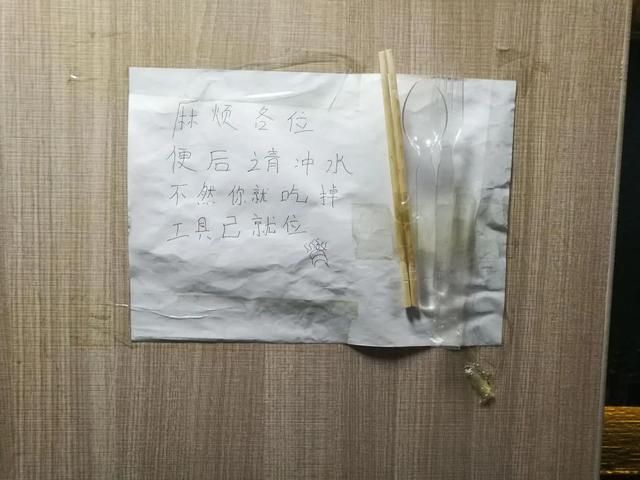 麻烦各位
便后请冲水
不然你就吃掉
工具已就位